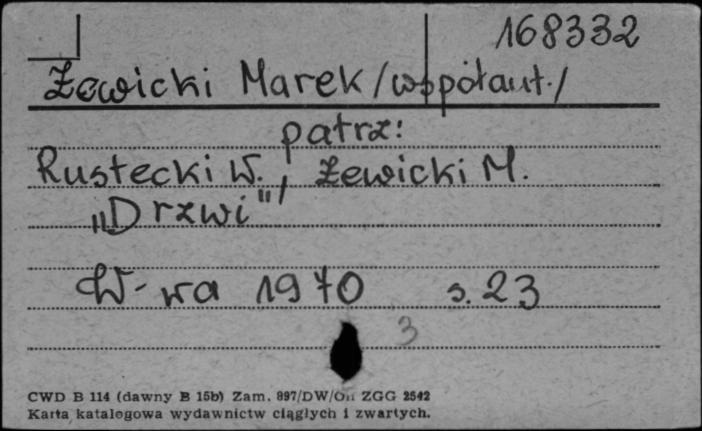 168332
Żewicki Marek /współaut./
patrz:
Rustecki W., Żewicki M.
"Drzwi"
W-wa 1970 s. 23
3
CWD B 114 (dawny B 15b) Zam. 897/DW/On ZGG 2542
Karta katalogowa wydawnictw ciągłych i zwartych.